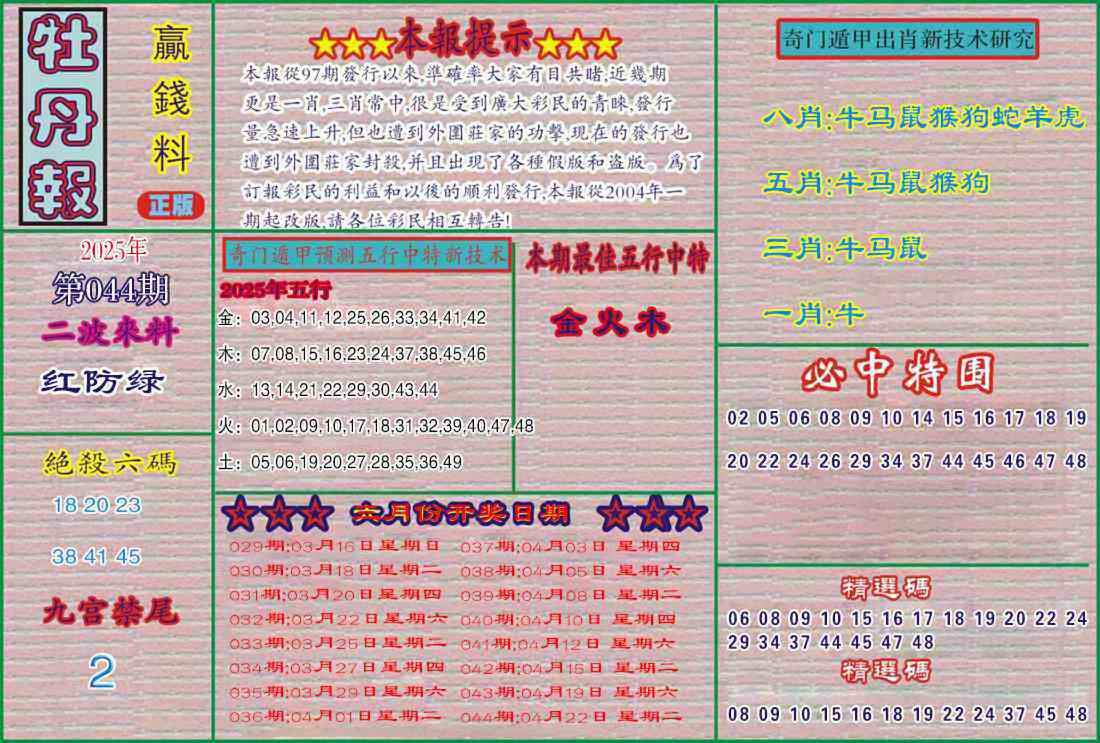 牡丹報
贏錢料
正版
★★★本報提示★★★
本報從97期發行以來,準確率大家有目共睹,近幾期
更是一肖,三肖常中,很是受到廣大彩民的青睞,發行
量急速上升,但也遭到外圍莊家的功擊,現在的發行也
遭到外圍莊家封殺,并且出現了各種假版和盜版。爲了
訂報彩民的利益和以後的順利發行,本報從2004年一
期起改版,請各位彩民相互轉告!
奇门遁甲出肖新技术研究
八肖:牛马鼠猴狗蛇羊虎
五肖:牛马鼠猴狗
三肖:牛马鼠
一肖:牛
2025年
第044期
二波來料
红防绿
奇门遁甲预测五行中特新技术
2025年五行
金：03,04,11,12,25,26,33,34,41,42
木：07,08,15,16,23,24,37,38,45,46
水：13,14,21,22,29,30,43,44
火：01,02,09,10,17,18,31,32,39,40,47,48
土：05,06,19,20,27,28,35,36,49
本期最佳五行中特
金火木
必中特围
02 05 06 08 09 10 14 15 16 17 18 19
20 22 24 26 29 34 37 44 45 46 47 48
絕殺六碼
18 20 23
38 41 45
九宫禁尾
2
☆☆☆ 六月份开奖日期 ☆☆☆
029期:03月16日星期日 037期:04月03日 星期四
030期:03月18日星期二 038期:04月05日 星期六
031期:03月20日星期四 039期:04月08日 星期二
032期:03月22日星期六 040期:04月10日 星期四
033期:03月25日星期二 041期:04月12日 星期六
034期:03月27日星期四 042期:04月15日 星期二
035期:03月29日星期六 043期:04月19日 星期六
036期:04月01日星期二 044期:04月22日 星期二
精選碼
06 08 09 10 15 16 17 18 19 20 22 24
29 34 37 44 45 47 48
精選碼
08 09 10 15 16 18 19 22 24 37 45 48